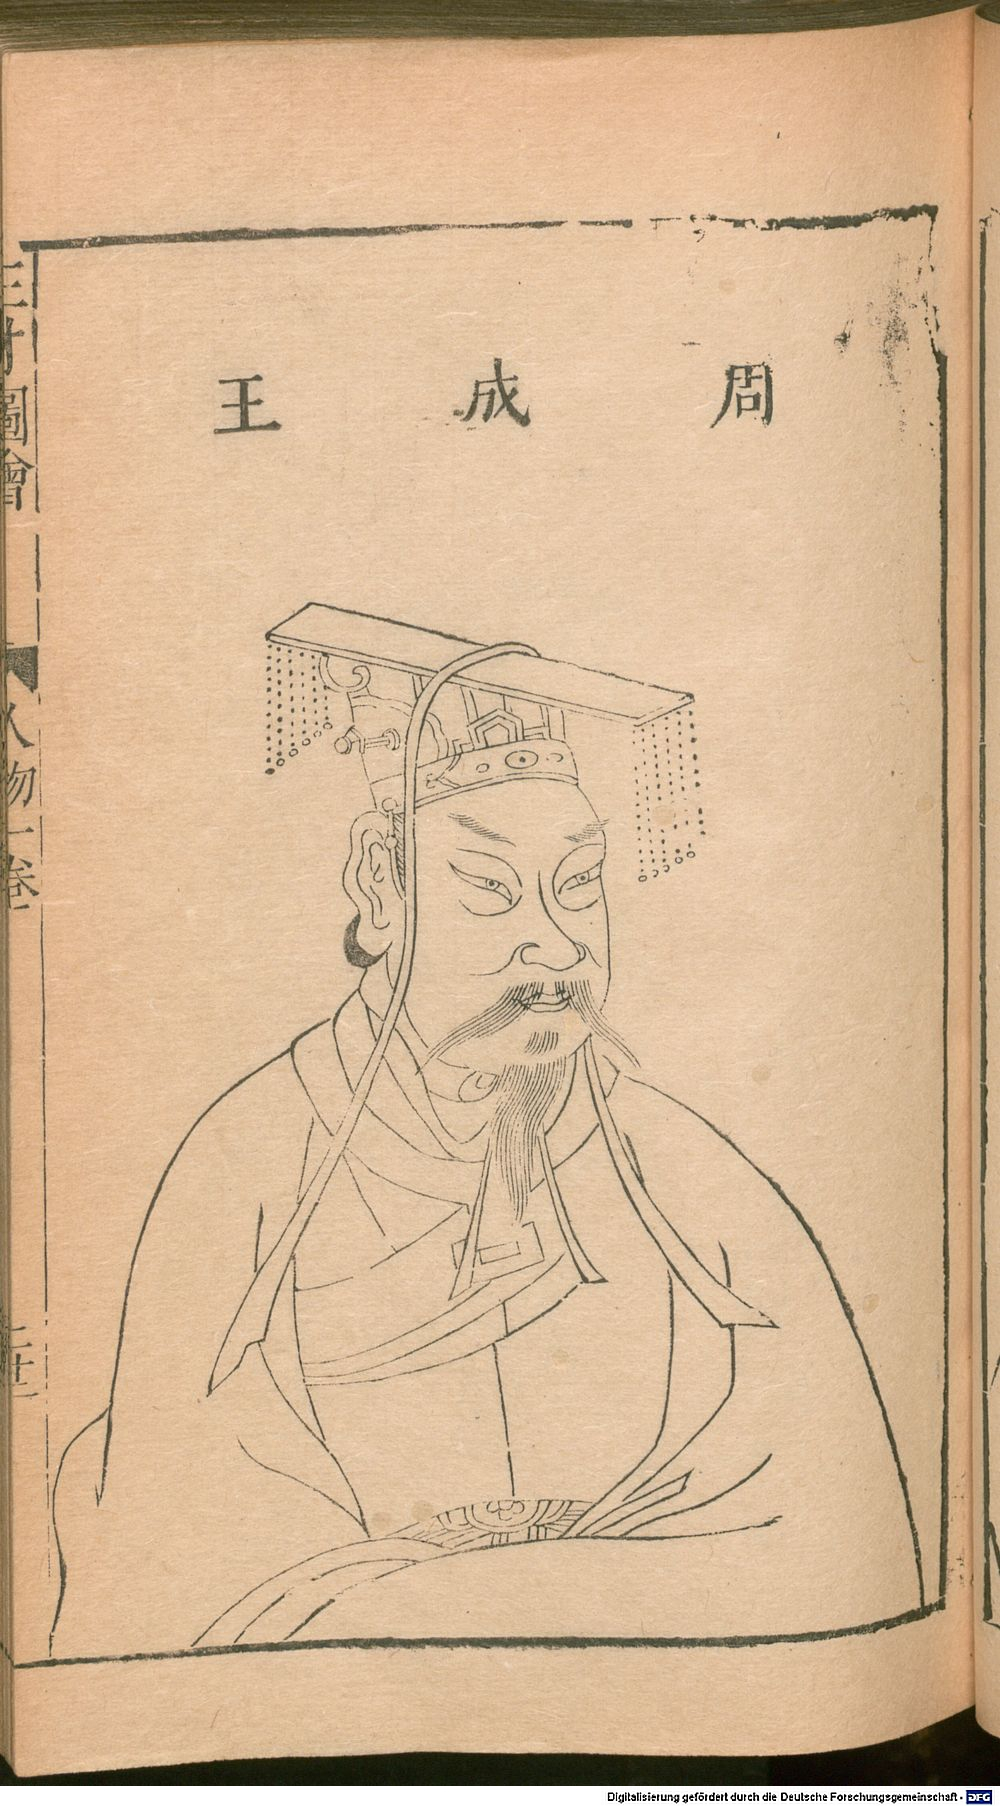 周成王
三才圖會
人物一卷
Digitalisierung gefördert durch die Deutsche Forschungsgemeinschaft - DFG